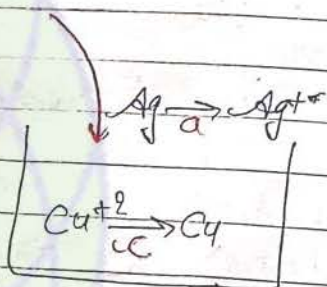 Ag →a Ag+
Cu+2 →c Cu